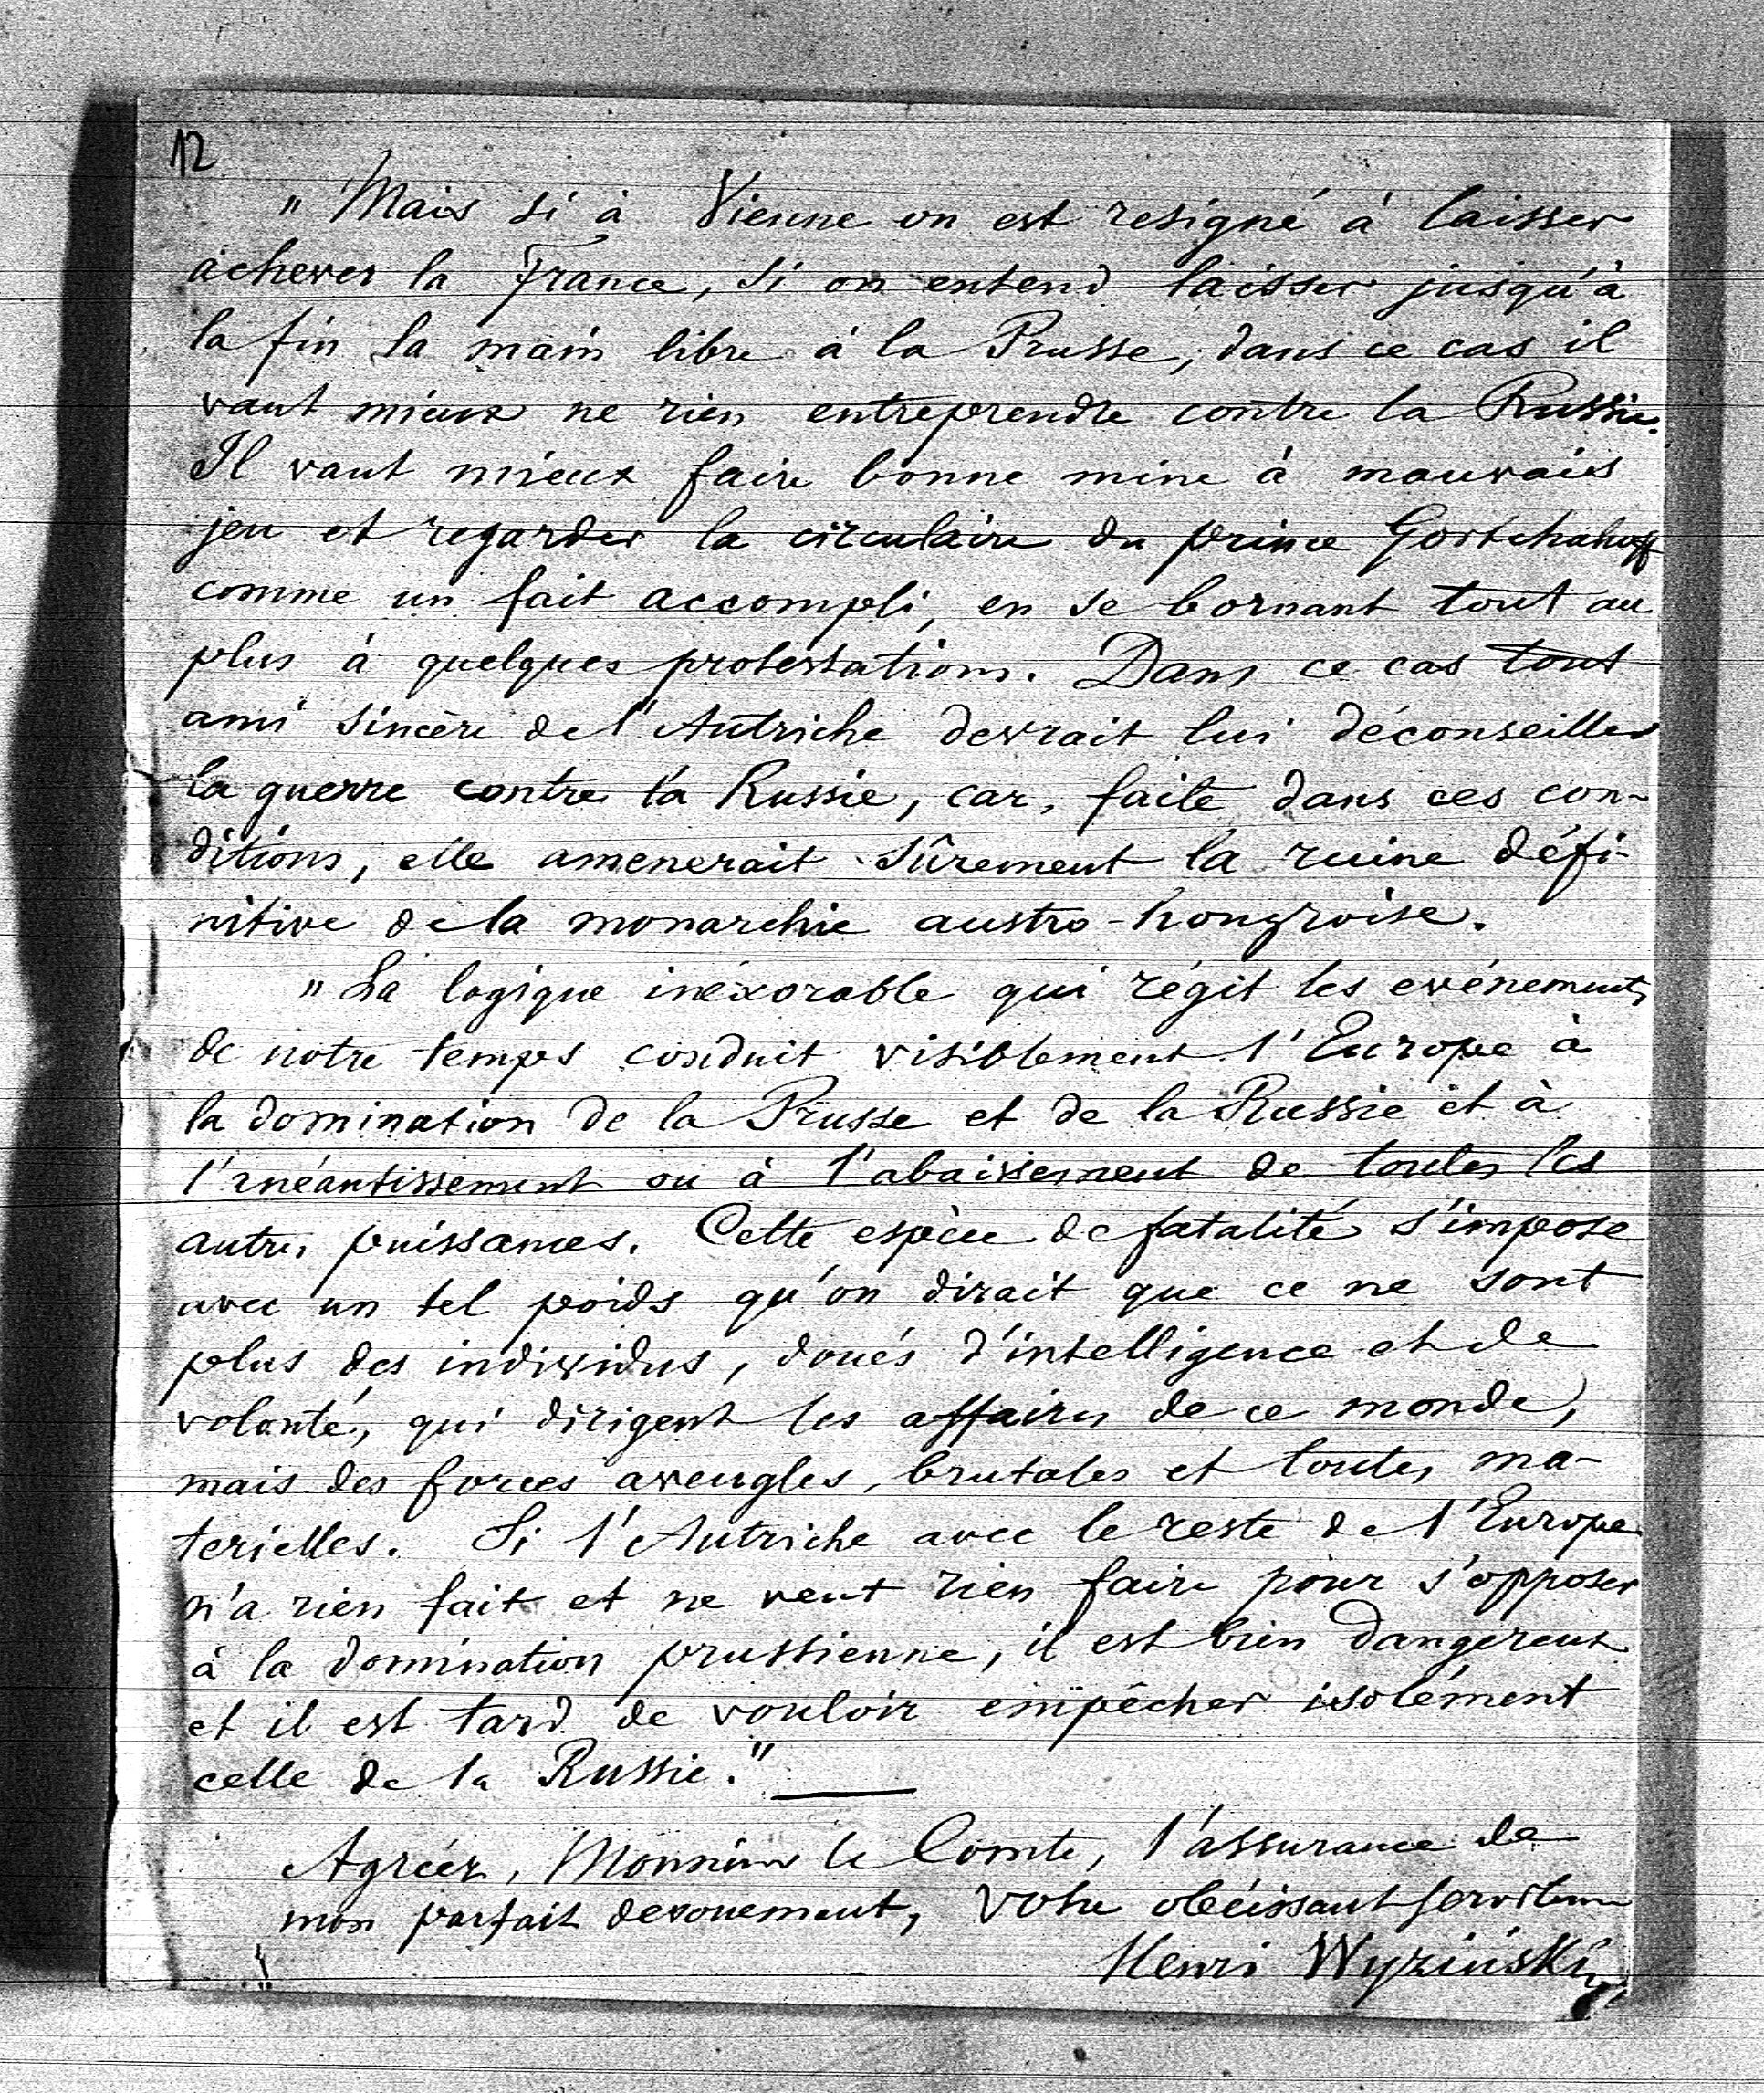 12
" Mais si à Vienne on est resigné à laisser
achever la France, si on entend laisser jusqu'à
la fin la main libre à la Prusse, dans ce cas il
vaut mieux ne rien entreprendre contre la Russie.
Il vaut mieux faire bonne mine à mauvais
jeu et regarder la circulaire du prince Gortchakoff
comme un fait accompli, en se bornant tout au
plus à quelques protestations. Dans ce cas tout
ami sincère de l'Autriche devrait lui déconseiller
la guerre contre la Russie, car, faite dans ces con-
ditions, elle amenerait sûrement la ruine défi-
nitive de la monarchie austro-hongroise.
" La logique inéxorable qui régit les evénements
de notre temps conduit visiblement l'Europe à
la domination de la Prusse et de la Russie et à
l'anéantissement ou à l'abaissement de toutes les
autres puissances. Cette espèce de fatalité s'impose
avec un tel poids qu'on dirait que ce ne sont
plus des individus, doués d'intelligence et de
volonté, qui dirigent les affaires de ce monde,
mais des forces aveugles, brutales et toutes ma-
terielles. Si l'Autriche avec le reste de l'Europe
n'a rien fait et ne veut rien faire pour s'opposer
à la domination prussienne, il est bien dangereux
et il est tard de vouloir empêcher isolément
celle de la Russie."
Agréez, Monsieur le Comte, l'assurance de
mon parfait devouement, Votre obéissant serviteur
Henri Wyziński